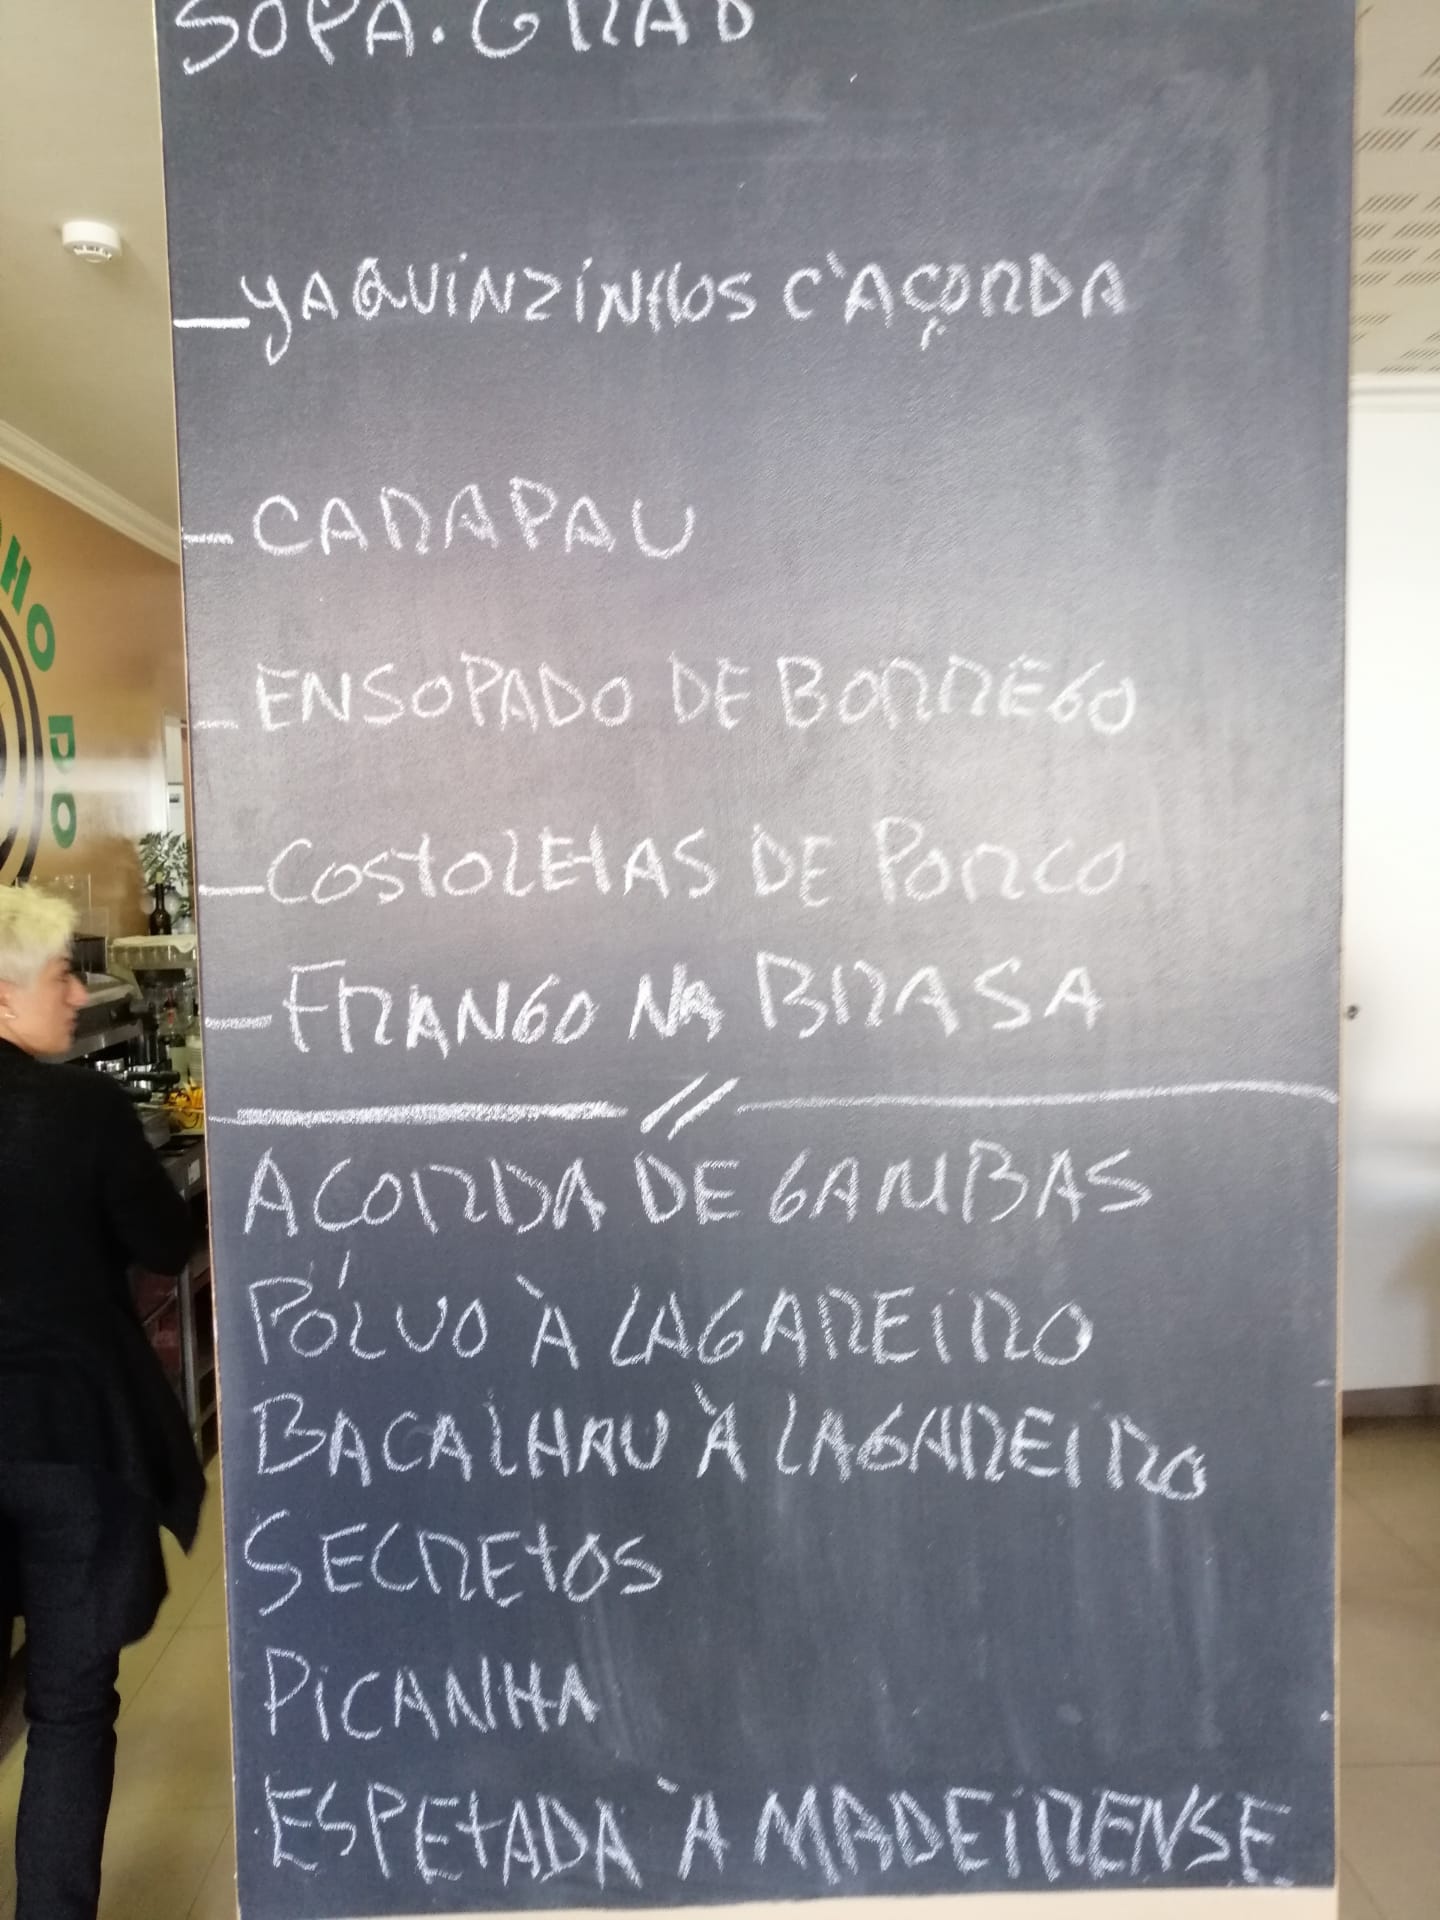 SOPA. GRÃO
_ YAQUINZINHOS C'AÇORDA
- CARAPAU
- ENSOPADO DE BORREGO
- COSTOLETAS DE PORCO
- FRANGO NA BRASA
//
AÇORDA DE GAMBAS
PÓLVO À LAGAREIRO
BACALHAU À LAGAREIRO
SECRETOS
PICANHA
ESPETADA À MADEIRENSE
HO DO